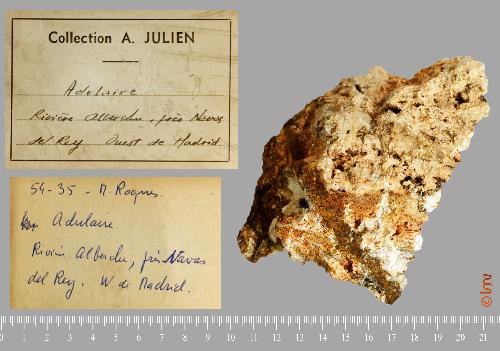 Collection A. JULIEN
Adulaire
Rivière Alberche, près Navas
del Rey Ouest de Madrid
54-35 - M. Roques
Adulaire
Rivière Alberche, près Navas
del Rey. W de Madrid.
© lmv
0 1 2 3 4 5 6 7 8 9 10 11 12 13 14 15 16 17 18 19 20 21